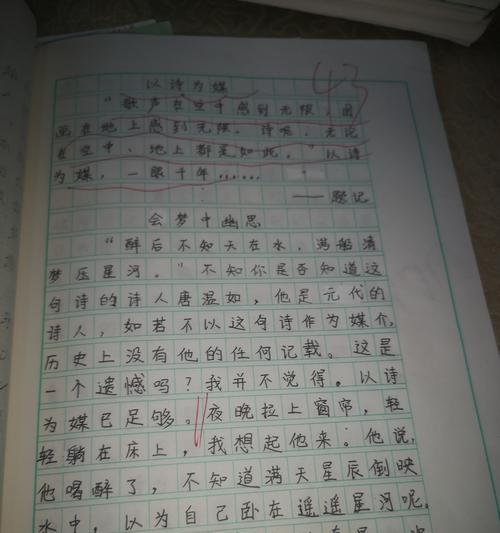 以诗为媒
43
“歌声在空中感到无限，图
画在地上感到无限。诗呢，无论
在空中、地上都是如此。”以诗
为媒，一眼千年……
——题记
会梦中幽思
“醉后不知天在水，满船清
梦压星河。”不知你是否知道这
句诗的诗人唐温如，他是元代的
诗人，如若不以这句诗作为媒介，
历史上没有他的任何记载。这是
一个遗憾吗？我并不觉得。以诗
为媒已足够。夜晚拉上窗帘，轻
轻躺在床上，我想起他来。他说，
他喝醉了，不知道满天星辰倒映
水中，以为自己卧在遥遥星河呢。